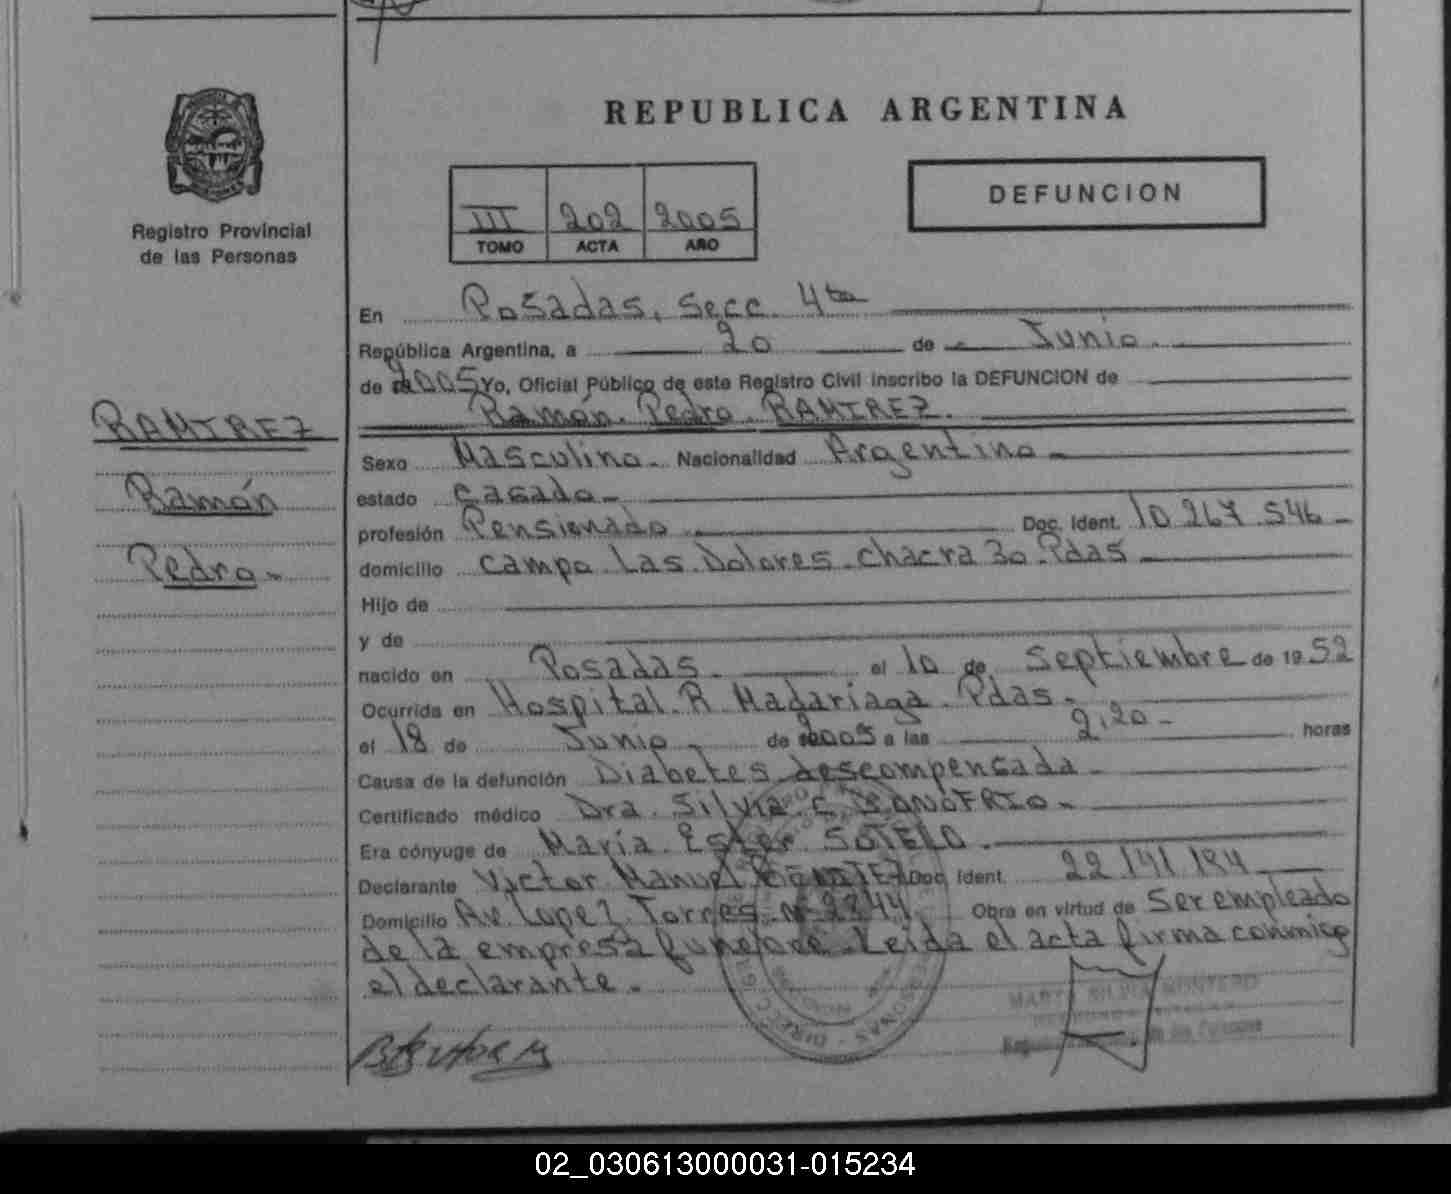 REPUBLICA ARGENTINA
DEFUNCION
III 202 2005
TOMO ACTA AÑO
Registro Provincial
de las Personas
RAMIREZ
Ramón
Pedro.-
En Posadas, Secc. 4ta
República Argentina, a 20 de Junio.
de 2005 Yo, Oficial Público de este Registro Civil inscribo la DEFUNCION de
Ramón. Pedro. RAMIREZ.
Sexo Masculino.- Nacionalidad Argentino.-
estado Casado.-
profesión Pensionado Doc. Ident. 10.267.546.-
domicilio Campo Las Dolores. Chacra 30. Pdas
Hijo de
y de
nacido en Posadas. el 10 de Septiembre de 1952
Ocurrida en Hospital. R. Madariaga. Pdas.
el 18 de Junio de 2005 a las 2,20.- horas
Causa de la defunción Diabetes descompensada.-
Certificado médico Dra. Silvia C. DONOFRIO.-
Era cónyuge de María Ester SOTELO.
Declarante Victor Manuel Doc. Ident. 22.141.184
Domicilio Av. Lopez Torres. Nº 2244. Obra en virtud de Ser empleado
de la empresa funebre. Leida el acta firma conmigo
el declarante.-
MARTA SILVIA MONTERO
02_030613000031-015234